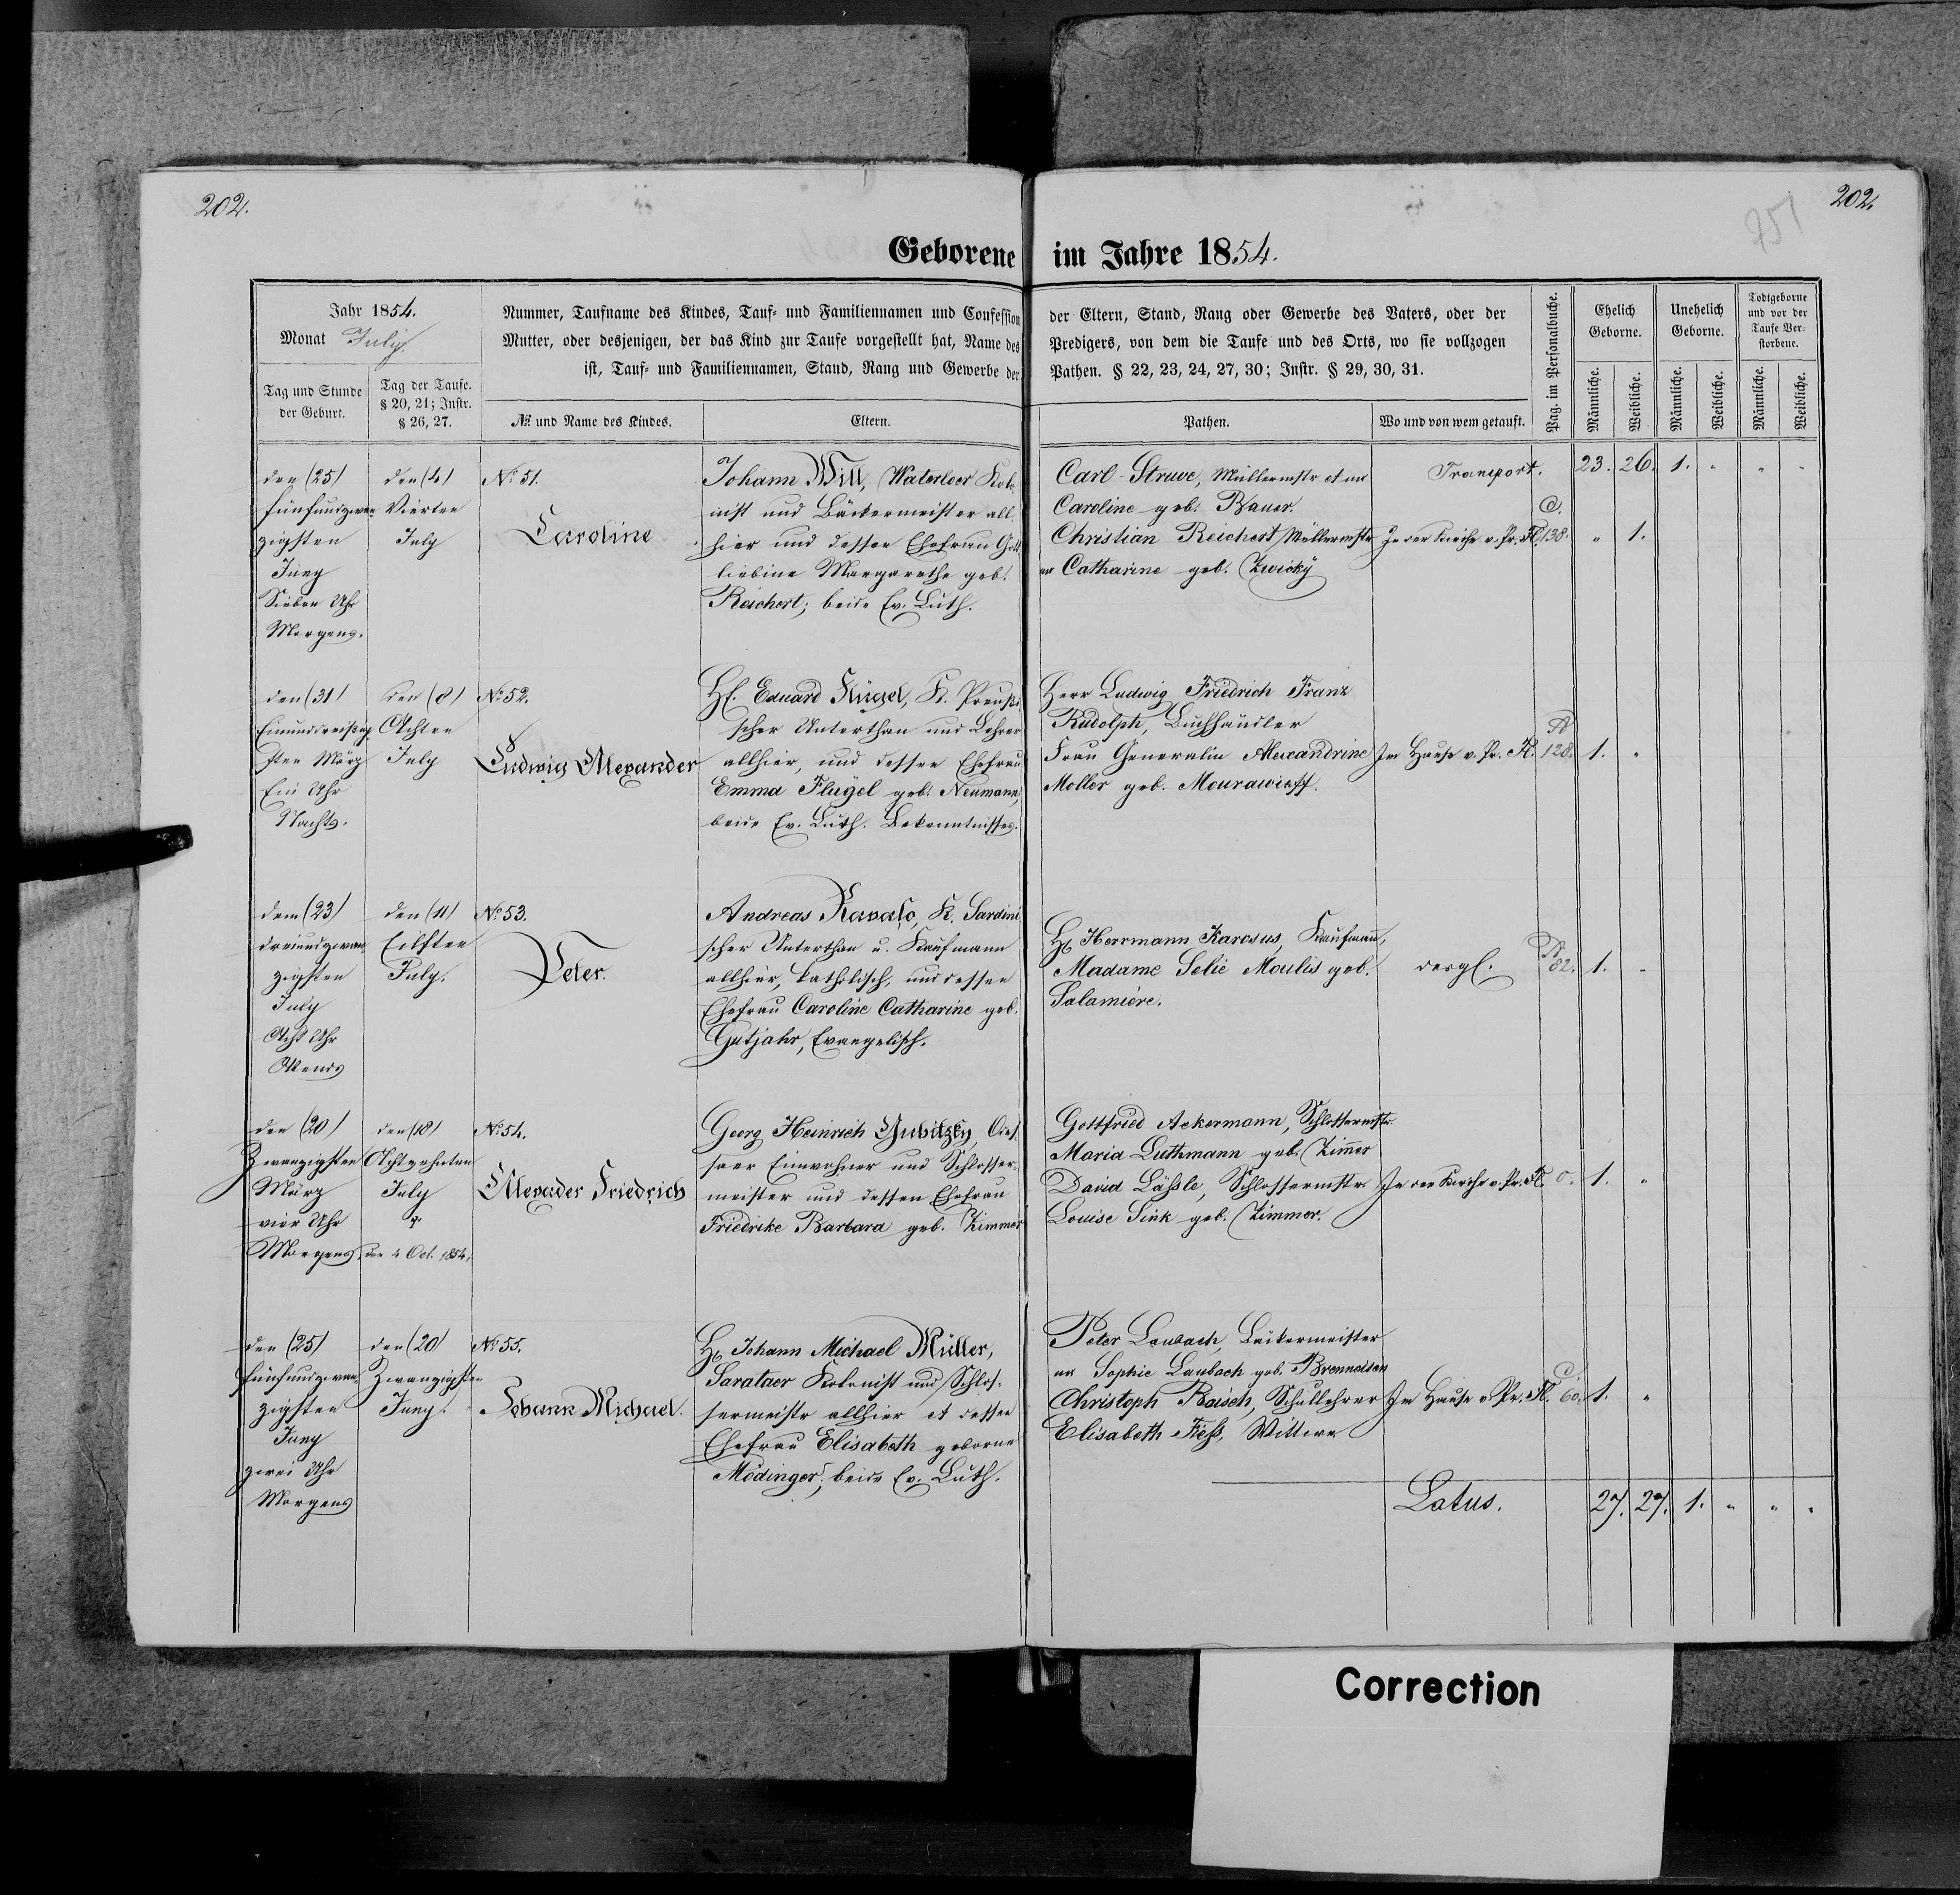 202.
202.
751
Geborene im Jahre 1854.
Jahr 1854.
Monat July.
Tag und Stunde der Geburt.
Tag der Taufe. § 20, 21; Instr. § 26, 27.
Nummer, Taufname des Kindes, Tauf- und Familiennamen und Confession der Eltern, Stand, Rang oder Gewerbe des Vaters, oder der
Mutter, oder desjenigen, der das Kind zur Taufe vorgestellt hat, Name des Predigers, von dem die Taufe und des Orts, wo sie vollzogen
ist, Tauf- und Familiennamen, Stand, Rang und Gewerbe der Pathen. § 22, 23, 24, 27, 30; Instr. § 29, 30, 31.
№ und Name des Kindes.
Eltern.
Pathen.
Wo und von wem getauft.
Pag. im Personalbuche.
Ehelich Geborne.
Unehelich Geborne.
Todtgeborne und vor der Taufe Verstorbene.
Männliche. Weibliche. Männliche. Weibliche. Männliche. Weibliche.
Transport. 23. 26. 1. " " "
den (25)
fünfundzwan
zigsten
Juny
Sieben Uhr
Morgens.
den (4)
Vierten
July
№ 51.
Caroline
Johann Will, Waterloer Kolo
nist und Bäckermeister all
hier und dessen Ehefrau Gott
liebine Margarethe geb.
Reichert; beide Ev. Luth.
Carl Struve, Müllermstr et ux
Caroline geb. Bauer.
Christian Reichert Müllermstr
ux Catharine geb. Zwicky
In der Kirche v. Pr. Fl.
C.
138.
" 1.
den (31)
Einunddreißig
sten März
Ein Uhr
Nachts.
den (8)
Achten
July
№ 52.
Ludwig Alexander
H. Eduard Flügel, K. Preußi
scher Unterthan und Lehrer
allhier, und dessen Ehefrau
Emma Flügel geb. Neumann,
beide Ev. Luth. Bekenntnisses.
Herr Ludwig Friedrich Franz
Rudolph, Buchhändler
Frau Generalin Alexandrine
Moller geb. Mourawieff.
Im Hause v. Pr. Fl.
A
128.
1. "
den (23)
dreiundzwan
zigsten
July
Acht Uhr
Abends
den (11)
Eilften
July.
№ 53.
Peter.
Andreas Ravalo, K. Sardini
scher Unterthan u. Kaufmann
allhier, katholisch, und dessen
Ehefrau Caroline Catharine geb.
Gutjahr, Evangelisch.
H. Herrmann Karosus, Kaufmann,
Madame Selie Moulis geb.
Salamiére.
desgl.
82.
1. "
den (20)
Zwanzigsten
März
vier Uhr
Morgens
den (18)
Achtzehnten
July
den 4 Oct. 1854.
№ 54.
Alexader Friedrich
Georg Heinrich Gubitzky, Odes
saer Einwohner und Schlosser
meister und dessen Ehefrau
Friedrike Barbara geb. Zimmer
Gottfried Ackermann, Schlossermstr.
Maria Luthmann geb. Zimer
David Läßle, Schlossermstr
Louise Sink geb. Zimmer.
In der Kirche v. Pr. Fl.
0.
1. "
den (25)
fünfundzwan
zigsten
Juny
zwei Uhr
Morgens
den (20)
Zwanzigsten
Juny.
№ 55.
Johann Michael.
H. Johann Michael Müller,
Sarataer Kolonist und Schlos-
sermeistr allhier et dessen
Ehefrau Elisabeth geborne
Mödinger; beide Ev. Luth.
Peter Laubach, Bäckermeister
ux Sophie Laubach geb. Brenneisen
Christoph Baisch, Schullehrer
Elisabeth Fieß, Wittwe
Im Hause v Pr. Fl.
C.
60.
1. "
Latus. 27. 27. 1. " " "
Correction